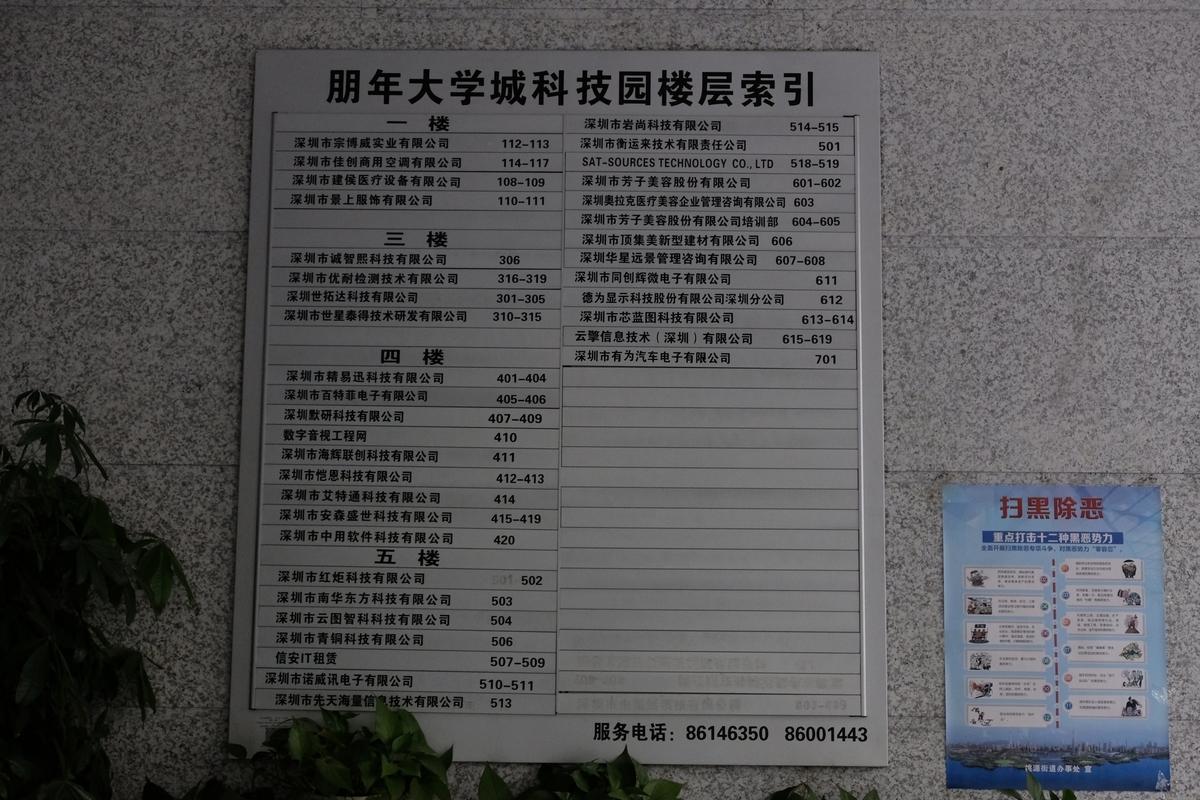 朋年大学城科技园楼层索引
一 楼
深圳市宗博威实业有限公司 112-113
深圳市佳创商用空调有限公司 114-117
深圳市建侯医疗设备有限公司 108-109
深圳市景上服饰有限公司 110-111
三 楼
深圳市诚智熙科技有限公司 306
深圳市优耐检测技术有限公司 316-319
深圳世拓达科技有限公司 301-305
深圳市世星泰得技术研发有限公司 310-315
四 楼
深圳市精易迅科技有限公司 401-404
深圳市百特菲电子有限公司 405-406
深圳默研科技有限公司 407-409
数字音视工程网 410
深圳市海辉联创科技有限公司 411
深圳市恺恩科技有限公司 412-413
深圳市艾特通科技有限公司 414
深圳市安森盛世科技有限公司 415-419
深圳市中用软件科技有限公司 420
五 楼
深圳市红炬科技有限公司 502
深圳市南华东方科技有限公司 503
深圳市云图智科科技有限公司 504
深圳市青铜科技有限公司 506
信安IT租赁 507-509
深圳市诺威讯电子有限公司 510-511
深圳市先天海量信息技术有限公司 513
深圳市岩尚科技有限公司 514-515
深圳市衡运来技术有限责任公司 501
SAT-SOURCES TECHNOLOGY CO.,LTD 518-519
深圳市芳子美容股份有限公司 601-602
深圳奥拉克医疗美容企业管理咨询有限公司 603
深圳市芳子美容股份有限公司培训部 604-605
深圳市顶集美新型建材有限公司 606
深圳华星远景管理咨询有限公司 607-608
深圳市同创辉微电子有限公司 611
德为显示科技股份有限公司深圳分公司 612
深圳市芯蓝图科技有限公司 613-614
云擎信息技术（深圳）有限公司 615-619
深圳市有为汽车电子有限公司 701
服务电话：86146350 86001443
扫黑除恶
重点打击十二种黑恶势力
全面开展扫黑除恶专项斗争，对黑恶势力“零容忍”。
桃源街道办事处 宣